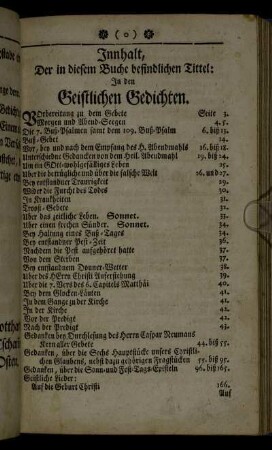 ( o )
Innhalt,
Der in diesem Buche befindlichen Tittel:
In den
Geistlichen Gedichten.
Vorbereitung zu dem Gebete Seite 3.
Morgen und Abend-Seegen 4. 5.
Die 7. Buß-Psalmen samt dem 109. Buß-Psalm 6. biß 13.
Buß-Gebet 14.
Vor, bey und nach dem Empfang des H. Abendmahls 16. biß 18.
Unterschiedne Gedancken von dem Heil. Abendmahl 19. biß 24.
Um ein GOtt-wohlgefälliges Leben 25.
Uber die betrügliche und über die falsche Welt 26. und 27.
Bey entstandner Traurigkeit 29.
Wider die Furcht des Todes 30.
In Kranckheiten 31.
Trost-Gebete 32.
Uber das zeitliche Leben. Sonnet. 33.
Uber einen sichern Sünder. Sonnet. 34.
Bey Haltung eines Buß-Tages 34.
Bey entstandner Pest-Zeit 36.
Nachdem die Pest aufgehöret hatte 37.
Von dem Sterben 37.
Bey entstandenen Donner-Wetter 38.
Uber des HErrn Christi Auferstehung 39.
Uber die 7. Vers des 6. Capitels Matthäi 40.
Bey dem Glocken-Läuten 41.
In dem Gange zu der Kirche 41.
In der Kirche 42.
Vor der Predigt 42.
Nach der Predigt 43.
Gedancken bey Durchlesung des Herrn Caspar Neumans
Kern aller Gebete 44. biß 55.
Gedancken, über die Sechs Hauptstücke unsers Christli-
chen Glaubens, nebst dazu gehörigen Fragstücken 55. biß 95.
Gedancken, über die Sonn- und Fest-Tags-Episteln 96. biß 165.
Geistliche Lieder:
Auf die Geburt Christi 166.
Auf